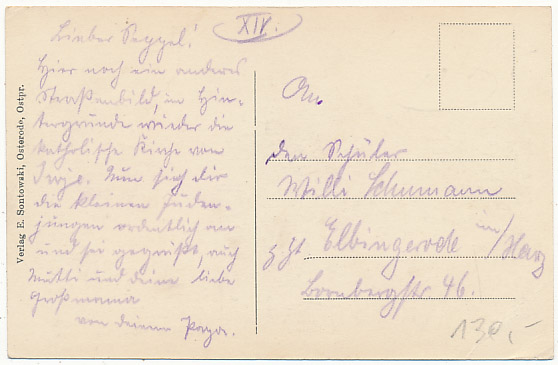 XIV.
Lieber Seppel!
Hier noch ein anderes
Straßenbild, im Hin-
tergrunde wieder die
katholische Kirche von
Nun sieh dir
die kleinen Juden-
jungen ordentlich an
und sei gegrüßt, auch
Mutti und deine liebe
Großmama
von deinem Papa.
Verlag E. Sontowski, Osterode, Ostpr.
An
den Schüler
Willi Schumann
z Zt Elbingerode im/Harz
Bornbergstr 46.
130,-